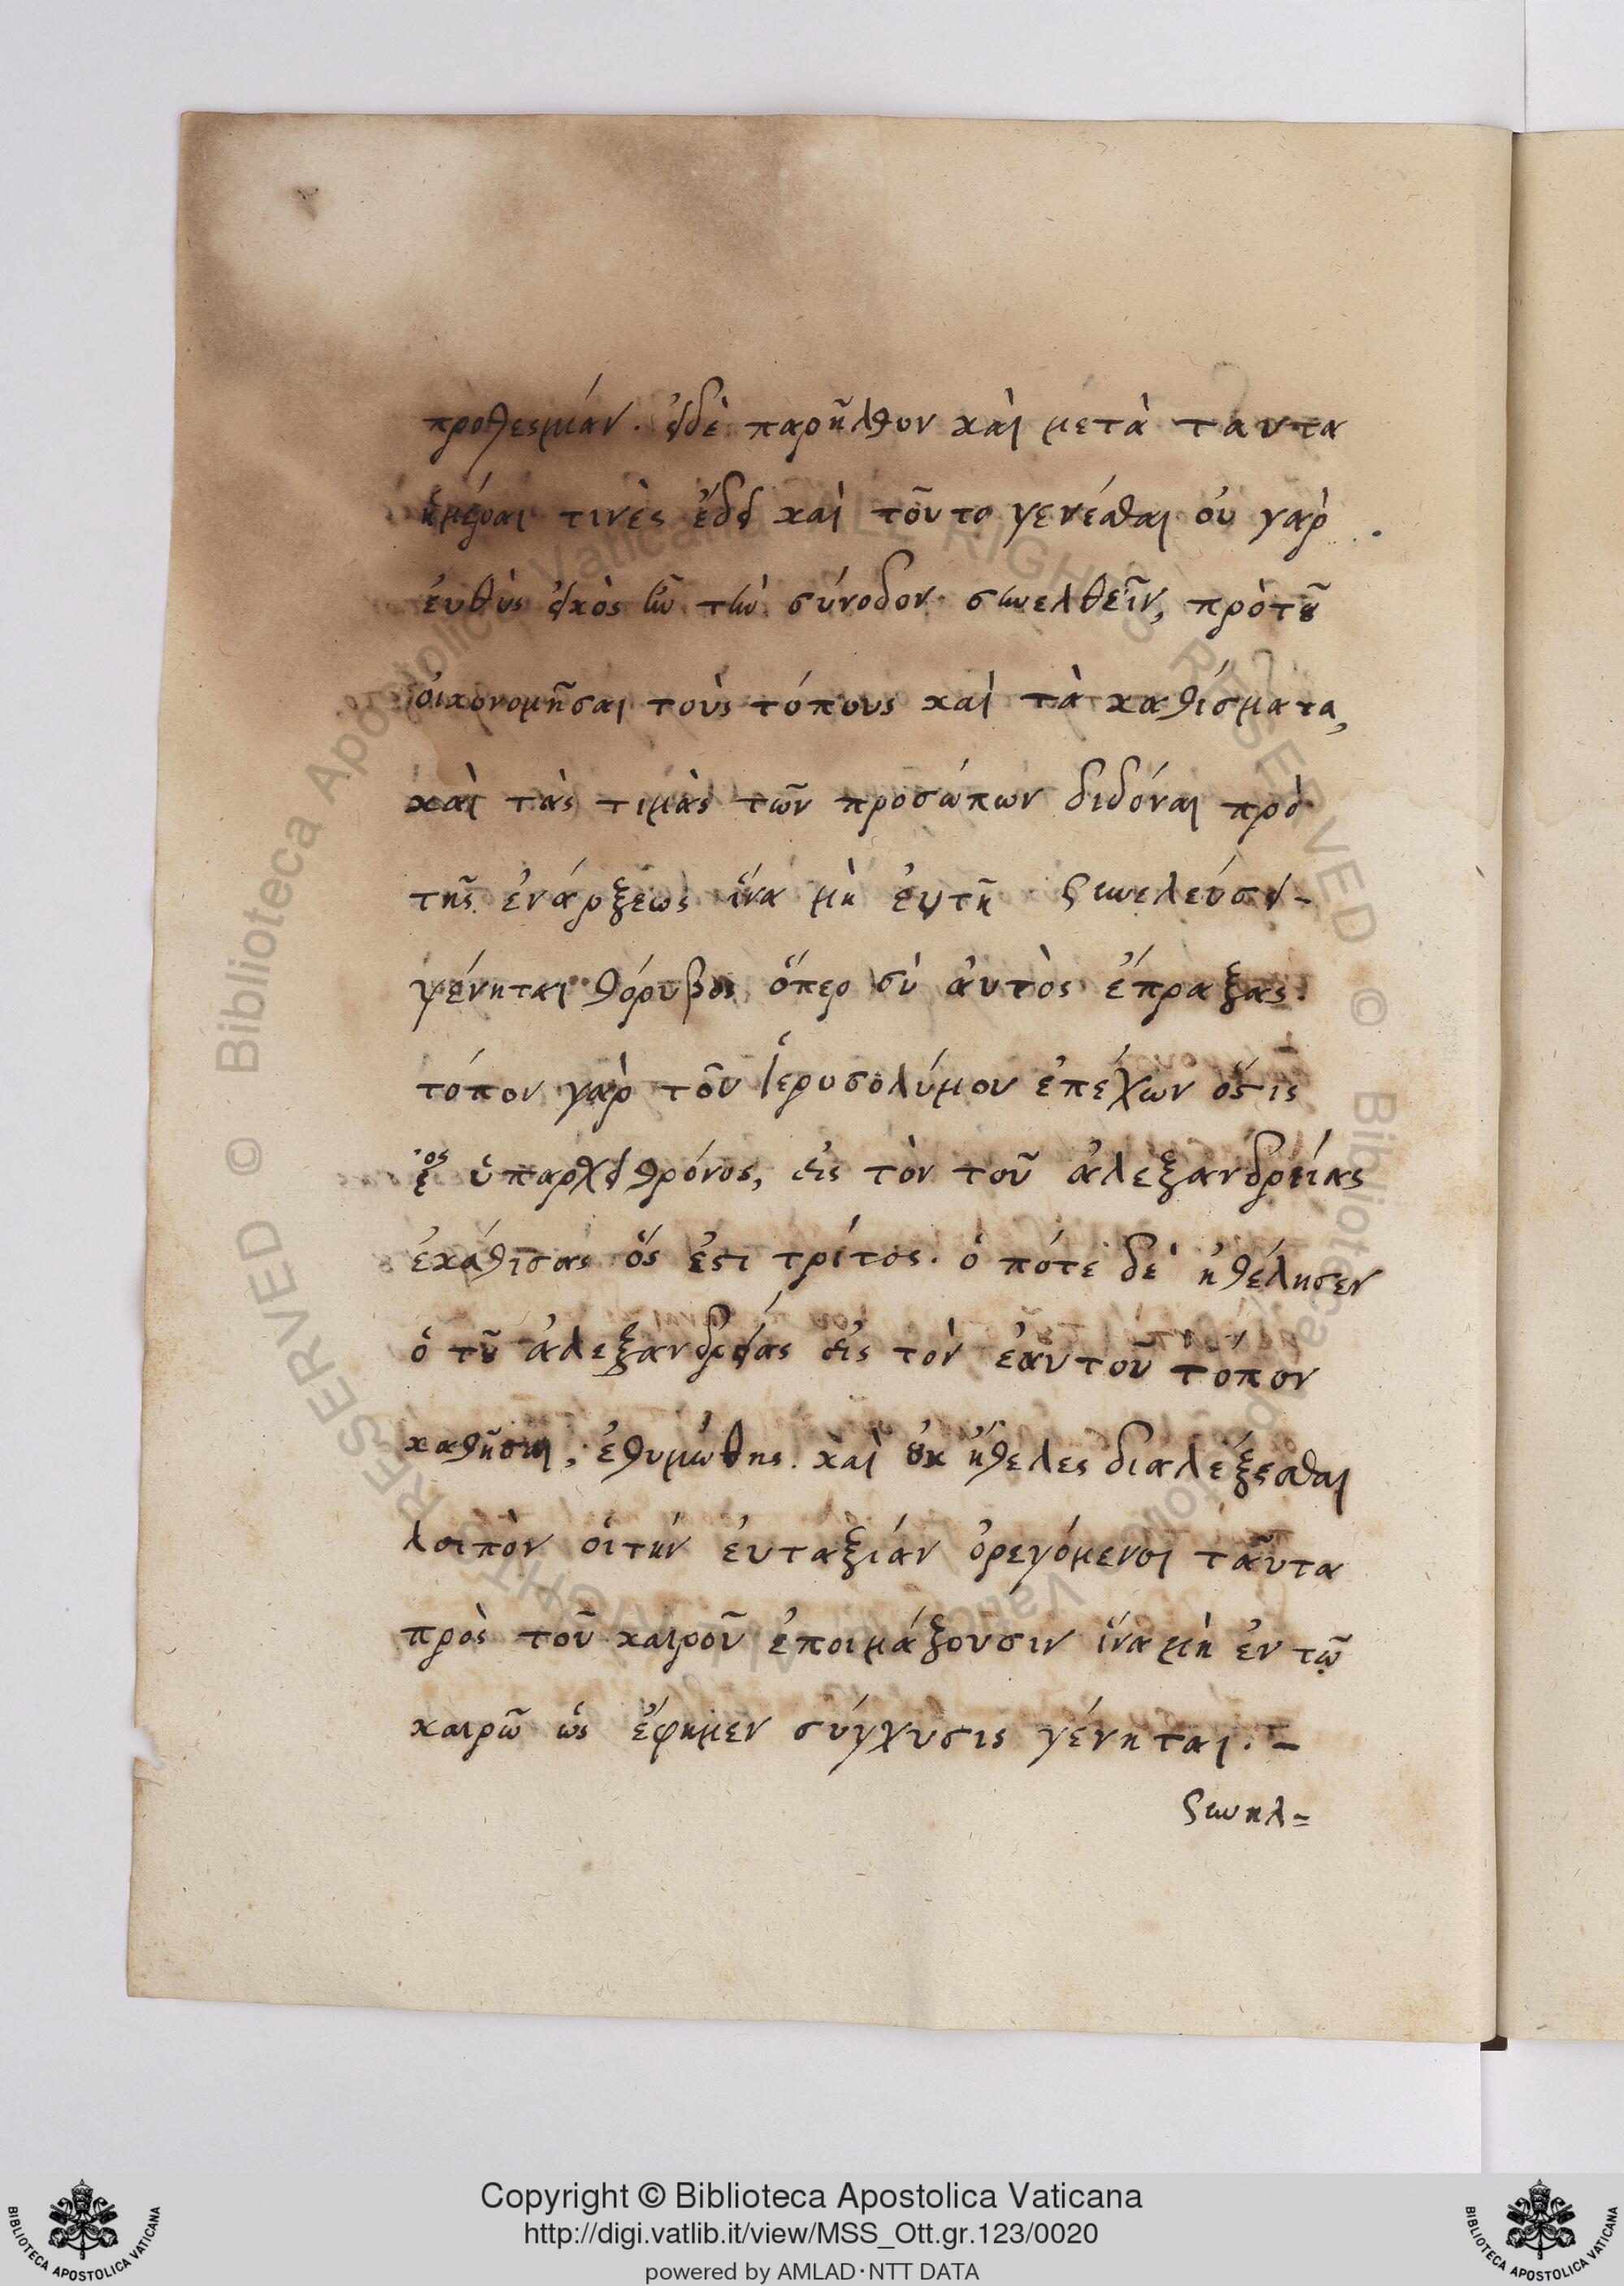 προθεσμίαν. εἰδὲ παρῆλθον καὶ μετὰ ταυτα
ἡμέραι τινὲς ἔδει καὶ τοῦτο γενέσθαι οὐ γαρ
ἐυθὺς εἰκὸς ἦν τὴν σύνοδον συνελθεῖν, πρὸτοῦ
οἰκονομῆσαι τοὺς τόπους καὶ τὰ καθίσματα,
καὶ τὰς τιμὰς τῶν προσώπων διδόναι πρὸ
τῆς ἐνάρξεως ἵνα μὴ ἐν τῇ συνελεύσει-
γένηται θόρυβος ὅπερ σὺ ἀυτὸς ἔπραξας.
τόπον γὰρ τοῦ Ἱερυσολύμου ἐπέχων ὅστις
εος ὑπαρχει θρόνος, εἰς τὸν τοῦ ἀλεξανδρείας
ἐκάθισας ὅς ἐστι τρίτος. ὁ πότε δὲ ἠθέλησεν
ὁ τοῦ ἀλεξανδρείας εἰς τὸν ἑαυτοῦ τόπον
καθῆσαι, ἐθυμώθης. καὶ οὐκ ἤθελες διαλέξεσθαι
λοιπὸν οἱ τὴν ἐυταξιάν ὀρεγόμενοι ταῦτα
πρὸς τοῦ καιροῦ ἑτοιμάζουσιν ἵνα μὴ ἐν τῷ
καιρῶ ὡς ἔφημεν σύγχυσις γένηται. -
συνηλ=
Copyright © Biblioteca Apostolica Vaticana
http://digi.vatlib.it/view/MSS_Ott.gr.123/0020
powered by AMLAD·NTT DATA
BIBLIOTECA APOSTOLICA VATICANA
BIBLIOTECA APOSTOLICA VATICANA